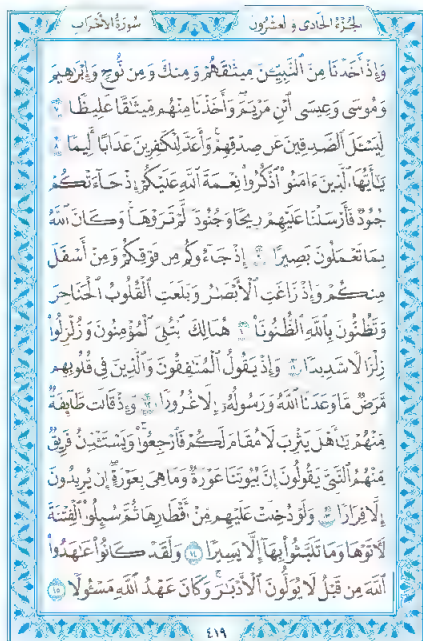 الجزء الحادي والعشرون سورة الأحزاب
وَإِذْ أَخَذْنَا مِنَ ٱلنَّبِيِّـۧنَ مِيثَـٰقَهُمْ وَمِنكَ وَمِن نُّوحٍ وَإِبْرَٰهِيمَ
وَمُوسَىٰ وَعِيسَى ٱبْنِ مَرْيَمَ ۖ وَأَخَذْنَا مِنْهُم مِّيثَـٰقًا غَلِيظًا ٧
لِّيَسْـَٔلَ ٱلصَّـٰدِقِينَ عَن صِدْقِهِمْ ۚ وَأَعَدَّ لِلْكَـٰفِرِينَ عَذَابًا أَلِيمًا ٨
يَـٰٓأَيُّهَا ٱلَّذِينَ ءَامَنُوا۟ ٱذْكُرُوا۟ نِعْمَةَ ٱللَّهِ عَلَيْكُمْ إِذْ جَآءَتْكُمْ
جُنُودٌ فَأَرْسَلْنَا عَلَيْهِمْ رِيحًا وَجُنُودًا لَّمْ تَرَوْهَا ۚ وَكَانَ ٱللَّهُ
بِمَا تَعْمَلُونَ بَصِيرًا ٩ إِذْ جَآءُوكُم مِّن فَوْقِكُمْ وَمِنْ أَسْفَلَ
مِنكُمْ وَإِذْ زَاغَتِ ٱلْأَبْصَـٰرُ وَبَلَغَتِ ٱلْقُلُوبُ ٱلْحَنَاجِرَ
وَتَظُنُّونَ بِٱللَّهِ ٱلظُّنُونَا۠ ١٠ هُنَالِكَ ٱبْتُلِىَ ٱلْمُؤْمِنُونَ وَزُلْزِلُوا۟
زِلْزَالًا شَدِيدًا ١١ وَإِذْ يَقُولُ ٱلْمُنَـٰفِقُونَ وَٱلَّذِينَ فِى قُلُوبِهِم
مَّرَضٌ مَّا وَعَدَنَا ٱللَّهُ وَرَسُولُهُۥٓ إِلَّا غُرُورًا ١٢ وَإِذْ قَالَت طَّآئِفَةٌ
مِّنْهُمْ يَـٰٓأَهْلَ يَثْرِبَ لَا مُقَامَ لَكُمْ فَٱرْجِعُوا۟ ۚ وَيَسْتَـْٔذِنُ فَرِيقٌ
مِّنْهُمُ ٱلنَّبِىَّ يَقُولُونَ إِنَّ بُيُوتَنَا عَوْرَةٌ وَمَا هِىَ بِعَوْرَةٍ ۖ إِن يُرِيدُونَ
إِلَّا فِرَارًا ١٣ وَلَوْ دُخِلَتْ عَلَيْهِم مِّنْ أَقْطَارِهَا ثُمَّ سُئِلُوا۟ ٱلْفِتْنَةَ
لَـَٔاتَوْهَا وَمَا تَلَبَّثُوا۟ بِهَآ إِلَّا يَسِيرًا ١٤ وَلَقَدْ كَانُوا۟ عَـٰهَدُوا۟
ٱللَّهَ مِن قَبْلُ لَا يُوَلُّونَ ٱلْأَدْبَـٰرَ ۚ وَكَانَ عَهْدُ ٱللَّهِ مَسْـُٔولًا ١٥
٤١٩